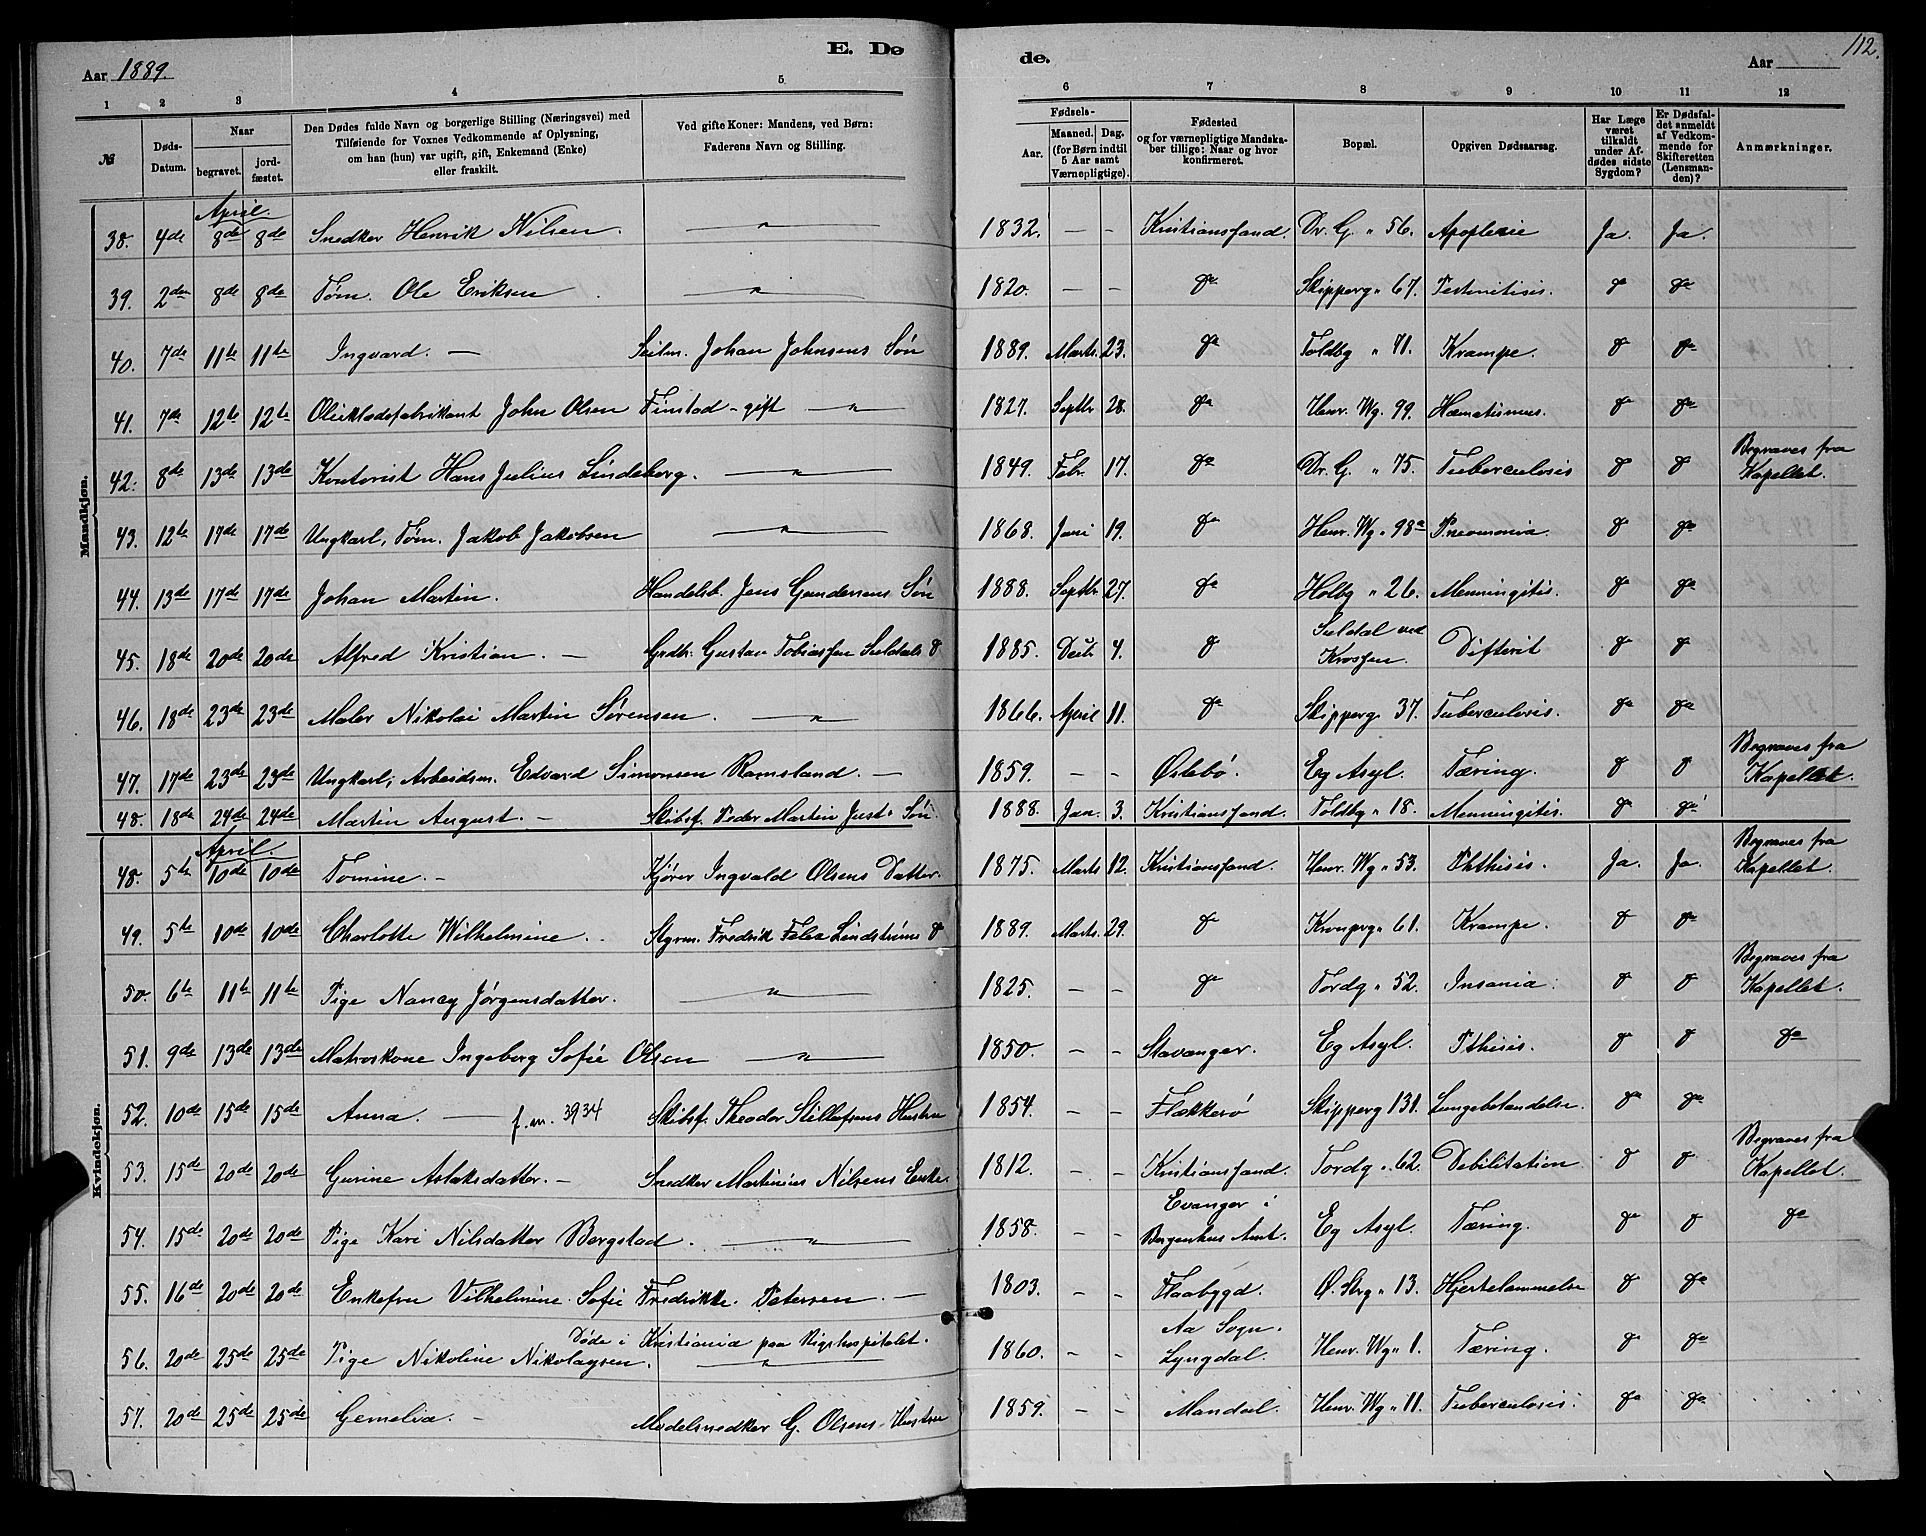 Aar 1889.
E. Dø
de.
Aar
112.
1 2 3 4 5 6 7 8 9 10 11 12
№
Døds-Datum.
Naar
begravet. jord-fæstet.
Den Dødes fulde Navn og borgerlige Stilling (Næringsvei) med
Tilføiende for Voxnes Vedkommende af Oplysning,
om han (hun) var ugift, gift, Enkemand (Enke)
eller fraskilt.
Ved gifte Koner: Mandens, ved Børn:
Faderens Navn og Stilling.
Fødsels-
Aar. Maaned. Dag.
(for Børn indtil
5 Aar samt
Værnepligtige).
Fødested
og for værnepligtige Mandska-
ber tillige: Naar og hvor
konfirmeret.
Bopæl.
Opgiven Dødsaarsag.
Har Læge
været
tilkaldt
under Af-
dødes sidste
Sygdom?
Er Dødsfal-
det anmeldt
af Vedkom-
mende for
Skifteretten
(Lensman-
den)?
Anmærkninger.
Mandkjøn.
April.
38. 4de 8de 8de Snedker Henrik Nilsen. — " — 1832. — - Kristianssand. Dr. G. " 56. Apoplexie Ja. Ja.
39. 2den 8de 8de Tøm. Ole Eriksen — " — 1820. — - do Skipperg " 67. do do
40. 7de 11te 11te Ingvard. — Seilm. Johan Johnsens Søn 1889. Marts. 23. do Toldbg " 71. Krampe. do do
41. 7de 12te 12te Olieklædefabrikant John Olsen Finstad - gift — " — 1827. Septbr 28. do Henr. Wg. 99. do do
42. 8de 13de 13de Kontorist Hans Julius Lindeberg. — " — 1849. Febr. 17. do Dr. G. " 75. Tuberculosis do do Begraves fra Kapellet.
43. 12te 17de 17de Ungkarl, Tøm. Jakob Jakobsen — " — 1868. Juni 19. do Henr. Wg " 98a Pneumonia. do do
44. 13de 17de 17de Johan Martin. Handelsb. Jens Gundersens Søn 1888. Septbr. 27. do Holbg " 26. Menningitis. do do
45. 18de 20de 20de Alfred Kristian. — Grdbr. Gustav Tobiassen Suldals do 1885. Decbr 4. do Suldal ved Krossen. Difterit do do
46. 18de 23de 23de Maler Nikolai Martin Sørensen. — " — 1866. April 11. do Skipperg. 37. Tuberculosis. do do
47. 17de 23de 23de Ungkarl, Arbeidsm. Edvard Simonsen Ramsland. — 1859. - - Øslebø. Eg Asyl. Tæring. do do Begraves fra Kapellet.
48. 18de 24de 24de Martin August. — Skibsf. Peder Martin Just's Søn. 1888. Jan. 3. Kristianssand. Toldbg " 18. Menningitis. do do
Kvindekjøn.
April.
48. 5te 10de 10de Tomine. - Kjører Ingvald Olsens Datter. 1875. Marts 12. Kristianssand. Henr. Wg " 53. Phthisis. Ja. Ja. Begraves fra Kapellet.
49. 5te 10de 10de Charlotte Wilhelmine. - Styrm. Fredrik Felix Lindstrøms do 1889. Marts. 29. do Kronprg " 61. Krampe. do do
50. 6te 11te 11te Pige Nancy Jørgensdatter. — " — 1825. - - do Tordg " 52. Insania. do do Begraves fra Kapellet.
51. 9de 13de 13de Matroskone Ingeborg Sofie Olsen — " — 1850. - - Stavanger. Eg Asyl. Pthisis. do do do
52. 10de 15de 15de Anna. — f. m. 3934 Skibsf. Theodor Stellefsens Hustru 1854. - - Flekkerø Skipperg 131. Lungebetændelse. do do
53. 15de 20de 20de Gurine Aslaksdatter. - Snedker Martinius Nilsens Enke. 1812. - - Kristianssand. Tordg " 62. Debilitation. do do Begraves fra Kapellet.
54. 15de 20de 20de Pige Kari Nilsdatter Bergstad. — " — 1858. - - Evanger i Bergenhus Amt. Eg Asyl. Tæring. do do do
55. 16de 20de 20de Enkefru Vilhelmine Sofie Fredrikke Petersen. — 1803. - - Flaabygd. Ø. Strg " 13. Hjertelammelse do do
Døde i Kristiania paa Rigshospitalet.
56. 20de 25de 25de Pige Nikoline Nikolaysen. — " — 1860. - - Aa Sogn. Lyngdal. Henr. Wg " 1. Tæring. do do
57. 20de 25de 25de Gemelia. - Modelsnedker G. Olsens Hustru 1859. - - Mandal. Henr. Wg " 11. Tuberculosis. do do